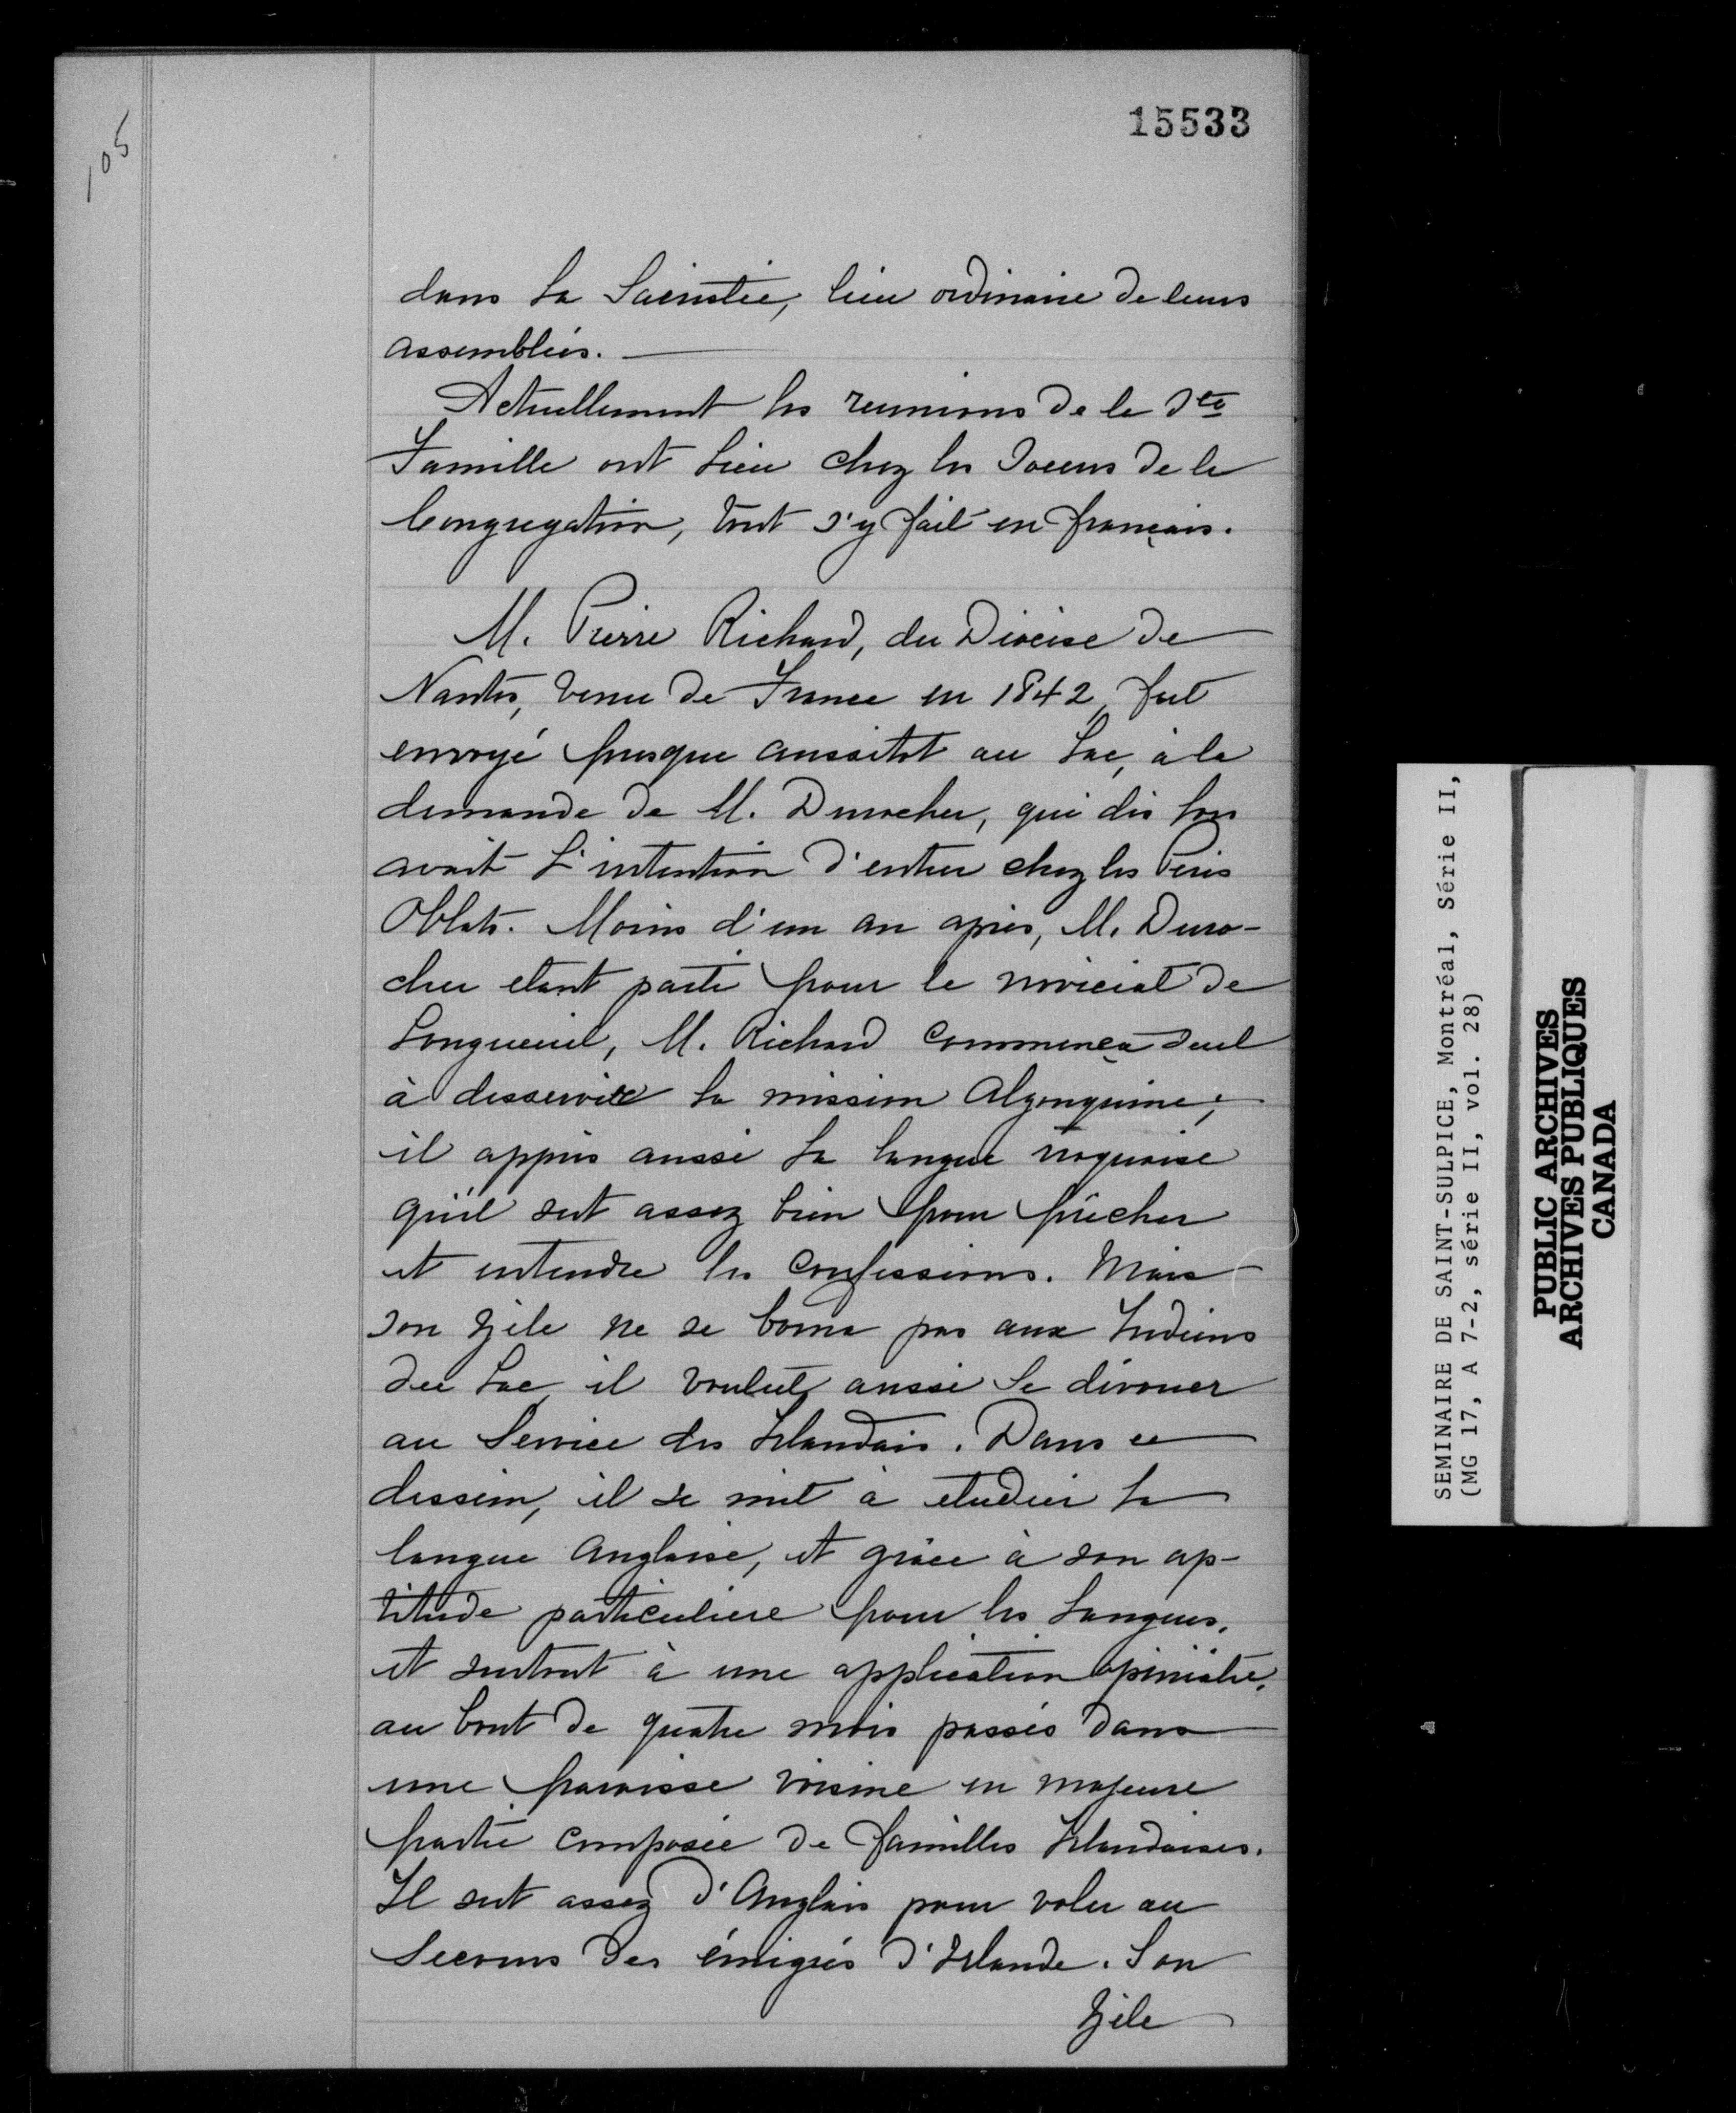 15533
105
dans la Sacristie, lieu ordinaire de leurs
assemblées.
Actuellement les reunions de la Ste
Famille ont lieu chez les Soeurs de la
Congregation, tout s'y fait en français.
M. Pierre Richard, du Diocèse de
Nantes, venu de France en 1842, fut
envoyé presque aussitot au Lac, à la
demande de M. Durocher, qui dès lors
avait l'intention d'entrer chez les Pères
Oblats. Moins d'un an après, M. Duro-
cher etant parti pour le noviciat de
Longueuil, M. Richard commença seul
à desservir la mission Algonquine;
il apprit aussi la langue iroquoise
qu'il sut assez bien pour prêcher
et entendre les confessions. Mais
son zèle ne se borna pas aux Indiens
du Lac, il voulut aussi se dévouer
au Service des Irlandais. Dans ce
dessein, il se mit à etudier la
langue Anglaise, et grâce à son ap-
titude particuliere pour les langues,
et surtout à une application opiniâtre,
au bout de quatre mois passés dans
une paroisse voisine en majeure
partie composée de familles Irlandaises.
Il sut assez d'Anglais pour voler au
Secours des émigrés d'Irlande. Son
Zèle
SEMINAIRE DE SAINT-SULPICE, Montréal, Série II,
(MG 17, A 7-2, série II, vol. 28)
PUBLIC ARCHIVES
ARCHIVES PUBLIQUES
CANADA